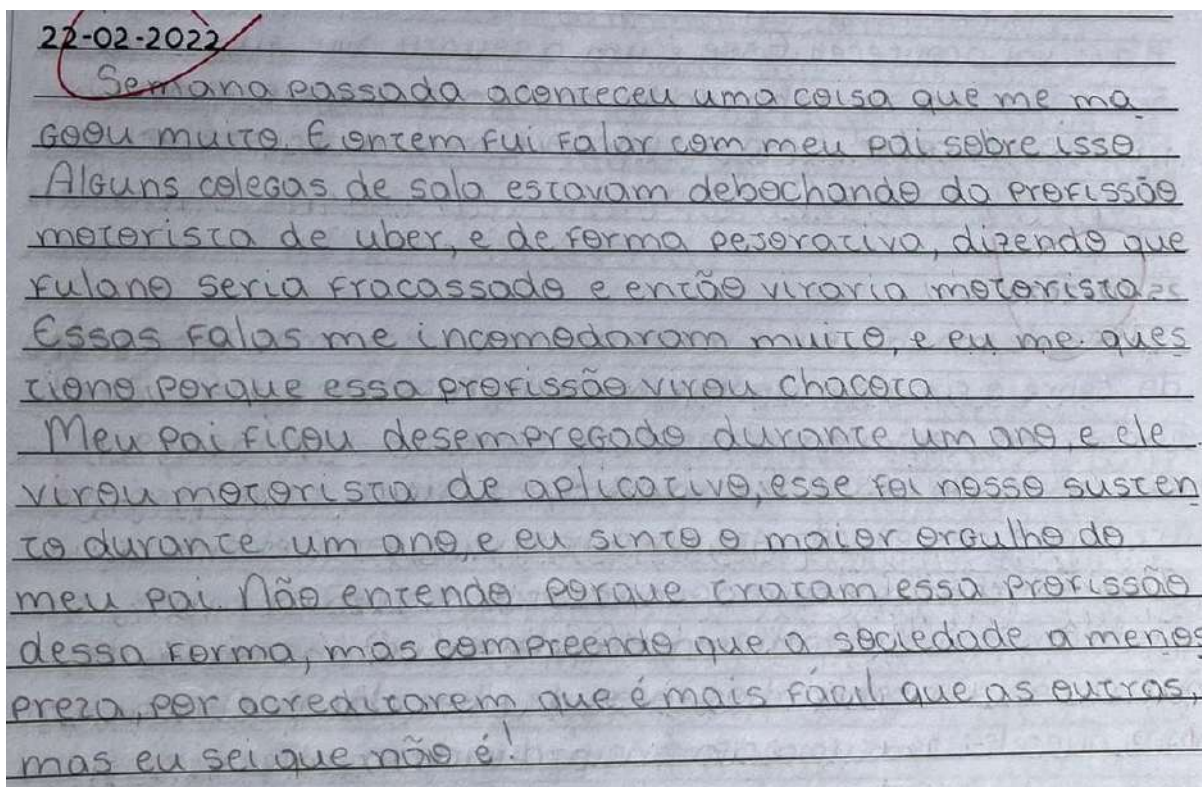 22-02-2022
Semana passada aconteceu uma coisa que me ma
goou muito. E ontem fui falar com meu pai sobre isso.
Alguns colegas de sala estavam debochando da profissão
motorista de uber, e de forma pejorativa, dizendo que
fulano seria fracassado e então viraria motorista.
Essas falas me incomodaram muito, e eu me ques
tiono porque essa profissão virou chacota
Meu pai ficou desempregado durante um ano, e ele
virou motorista de aplicativo, esse foi nosso susten
to durante um ano, e eu sinto o maior orgulho do
meu pai. Não entendo porque tratam essa profissão
dessa forma, mas compreendo que a sociedade a menos
preza, por acreditarem que é mais fácil que as outras,
mas eu sei que não é!